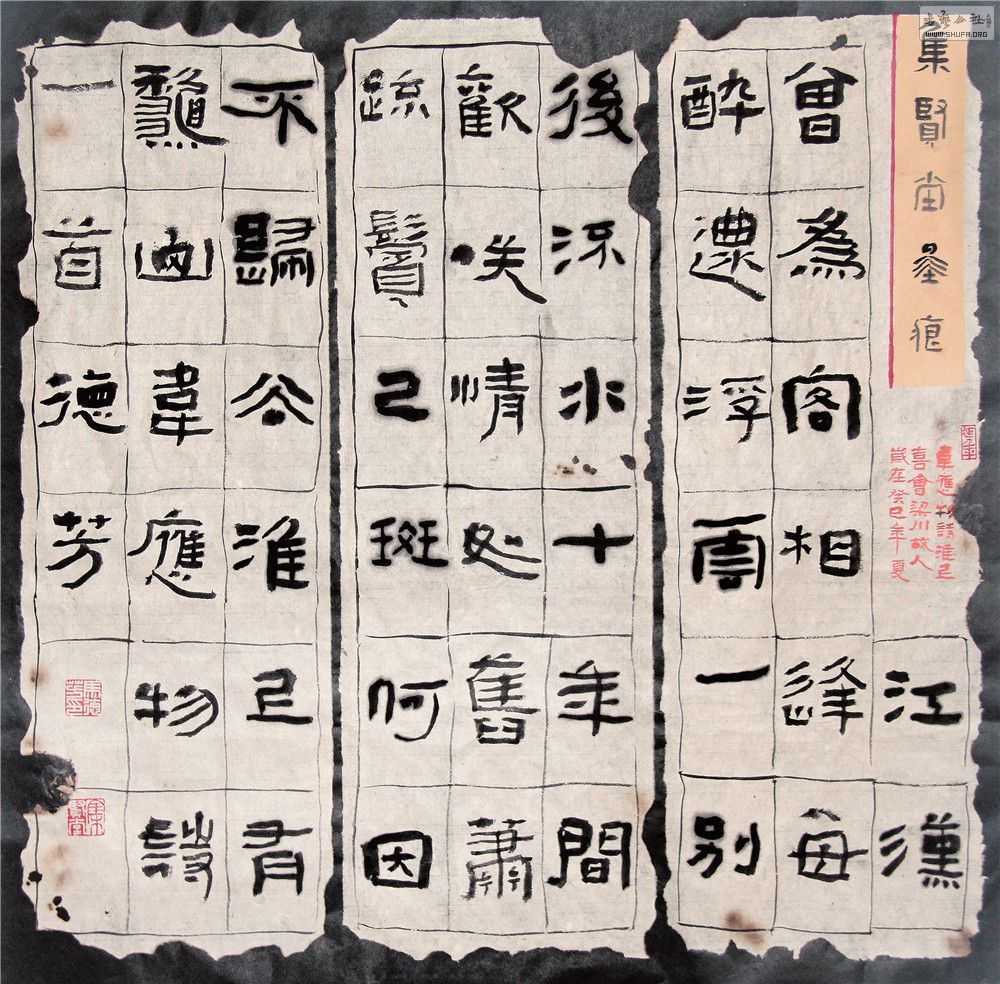 书艺公社
WWW.SHUFA.ORG
集賢堂墨痕
韋應物詩淮上
喜會梁川故人
歲在癸巳年夏
江漢
曾為客相逢每
醉還浮雲一別
後流水十年間
歡咲情如舊蕭
疏鬢已斑何因
不歸去淮上有
龝山韋應物詩
一首德芳
馬德芳印
集賢堂